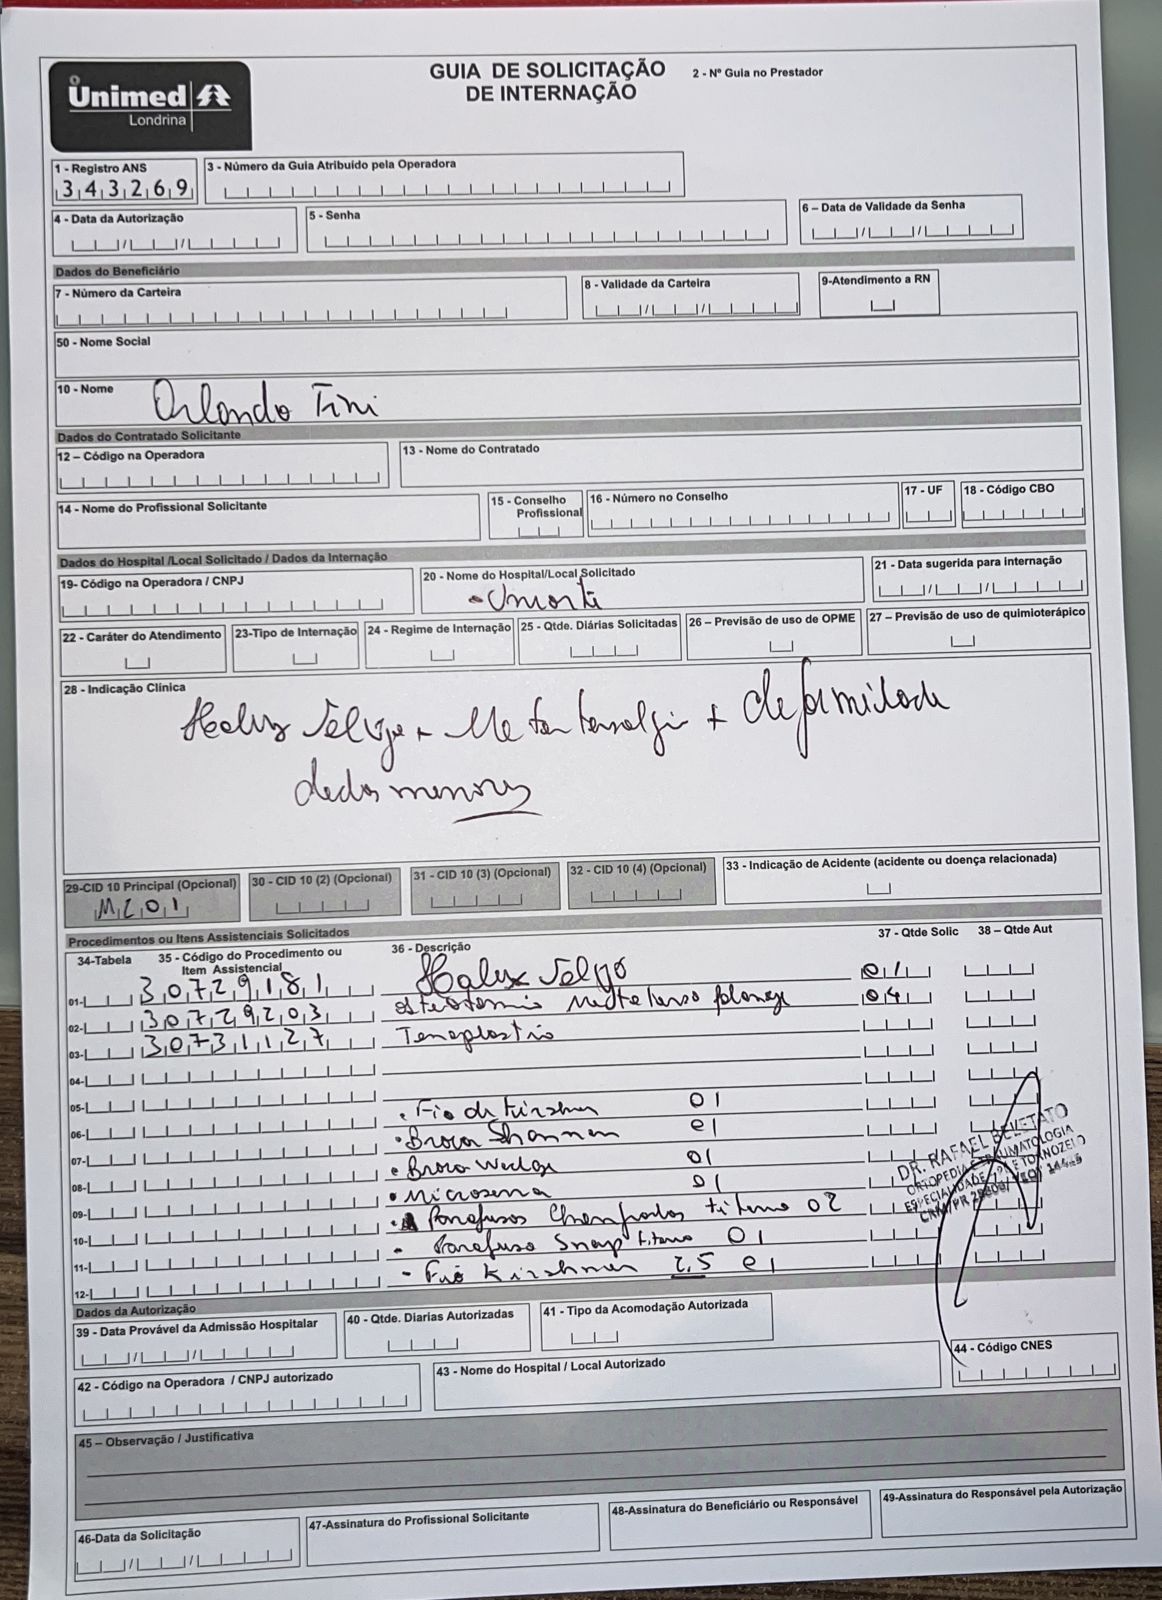 Unimed
Londrina
GUIA DE SOLICITAÇÃO
DE INTERNAÇÃO
2 - Nº Guia no Prestador
1 - Registro ANS
343269
3 - Número da Guia Atribuído pela Operadora
4 - Data da Autorização
5 - Senha
6 – Data de Validade da Senha
Dados do Beneficiário
7 - Número da Carteira
8 - Validade da Carteira
9-Atendimento a RN
50 - Nome Social
10 - Nome
Orlando Fini
Dados do Contratado Solicitante
12 – Código na Operadora
13 - Nome do Contratado
14 - Nome do Profissional Solicitante
15 - Conselho
Profissional
16 - Número no Conselho
17 - UF
18 - Código CBO
Dados do Hospital /Local Solicitado / Dados da Internação
19- Código na Operadora / CNPJ
20 - Nome do Hospital/Local Solicitado
21 - Data sugerida para internação
22 - Caráter do Atendimento
23-Tipo de Internação
24 - Regime de Internação
25 - Qtde. Diárias Solicitadas
26 – Previsão de uso de OPME
27 – Previsão de uso de quimioterápico
28 - Indicação Clínica
+ deformidade
dedos menores
29-CID 10 Principal (Opcional)
M201
30 - CID 10 (2) (Opcional)
31 - CID 10 (3) (Opcional)
32 - CID 10 (4) (Opcional)
33 - Indicação de Acidente (acidente ou doença relacionada)
Procedimentos ou Itens Assistenciais Solicitados
34-Tabela
35 - Código do Procedimento ou
Item Assistencial
36 - Descrição
37 - Qtde Solic
38 – Qtde Aut
01- 30729181 01
02- 30729203 04
03- 30731127 Tenoplastia
04-
05-
06- Fio de 01
07- Broca Shannon 01
08- Broca Wedge 01
09- Microserra 01
10- Parafusos titanio 02
11- Parafuso Snap titanio 01
12- Fio Kirshner 2,5 01
DR. RAFAEL BELETATO
ORTOPEDIA E TRAUMATOLOGIA
ESPECIALIDADE PÉ E TORNOZELO
Dados da Autorização
39 - Data Provável da Admissão Hospitalar
40 - Qtde. Diarias Autorizadas
41 - Tipo da Acomodação Autorizada
42 - Código na Operadora / CNPJ autorizado
43 - Nome do Hospital / Local Autorizado
44 - Código CNES
45 – Observação / Justificativa
46-Data da Solicitação
47-Assinatura do Profissional Solicitante
48-Assinatura do Beneficiário ou Responsável
49-Assinatura do Responsável pela Autorização